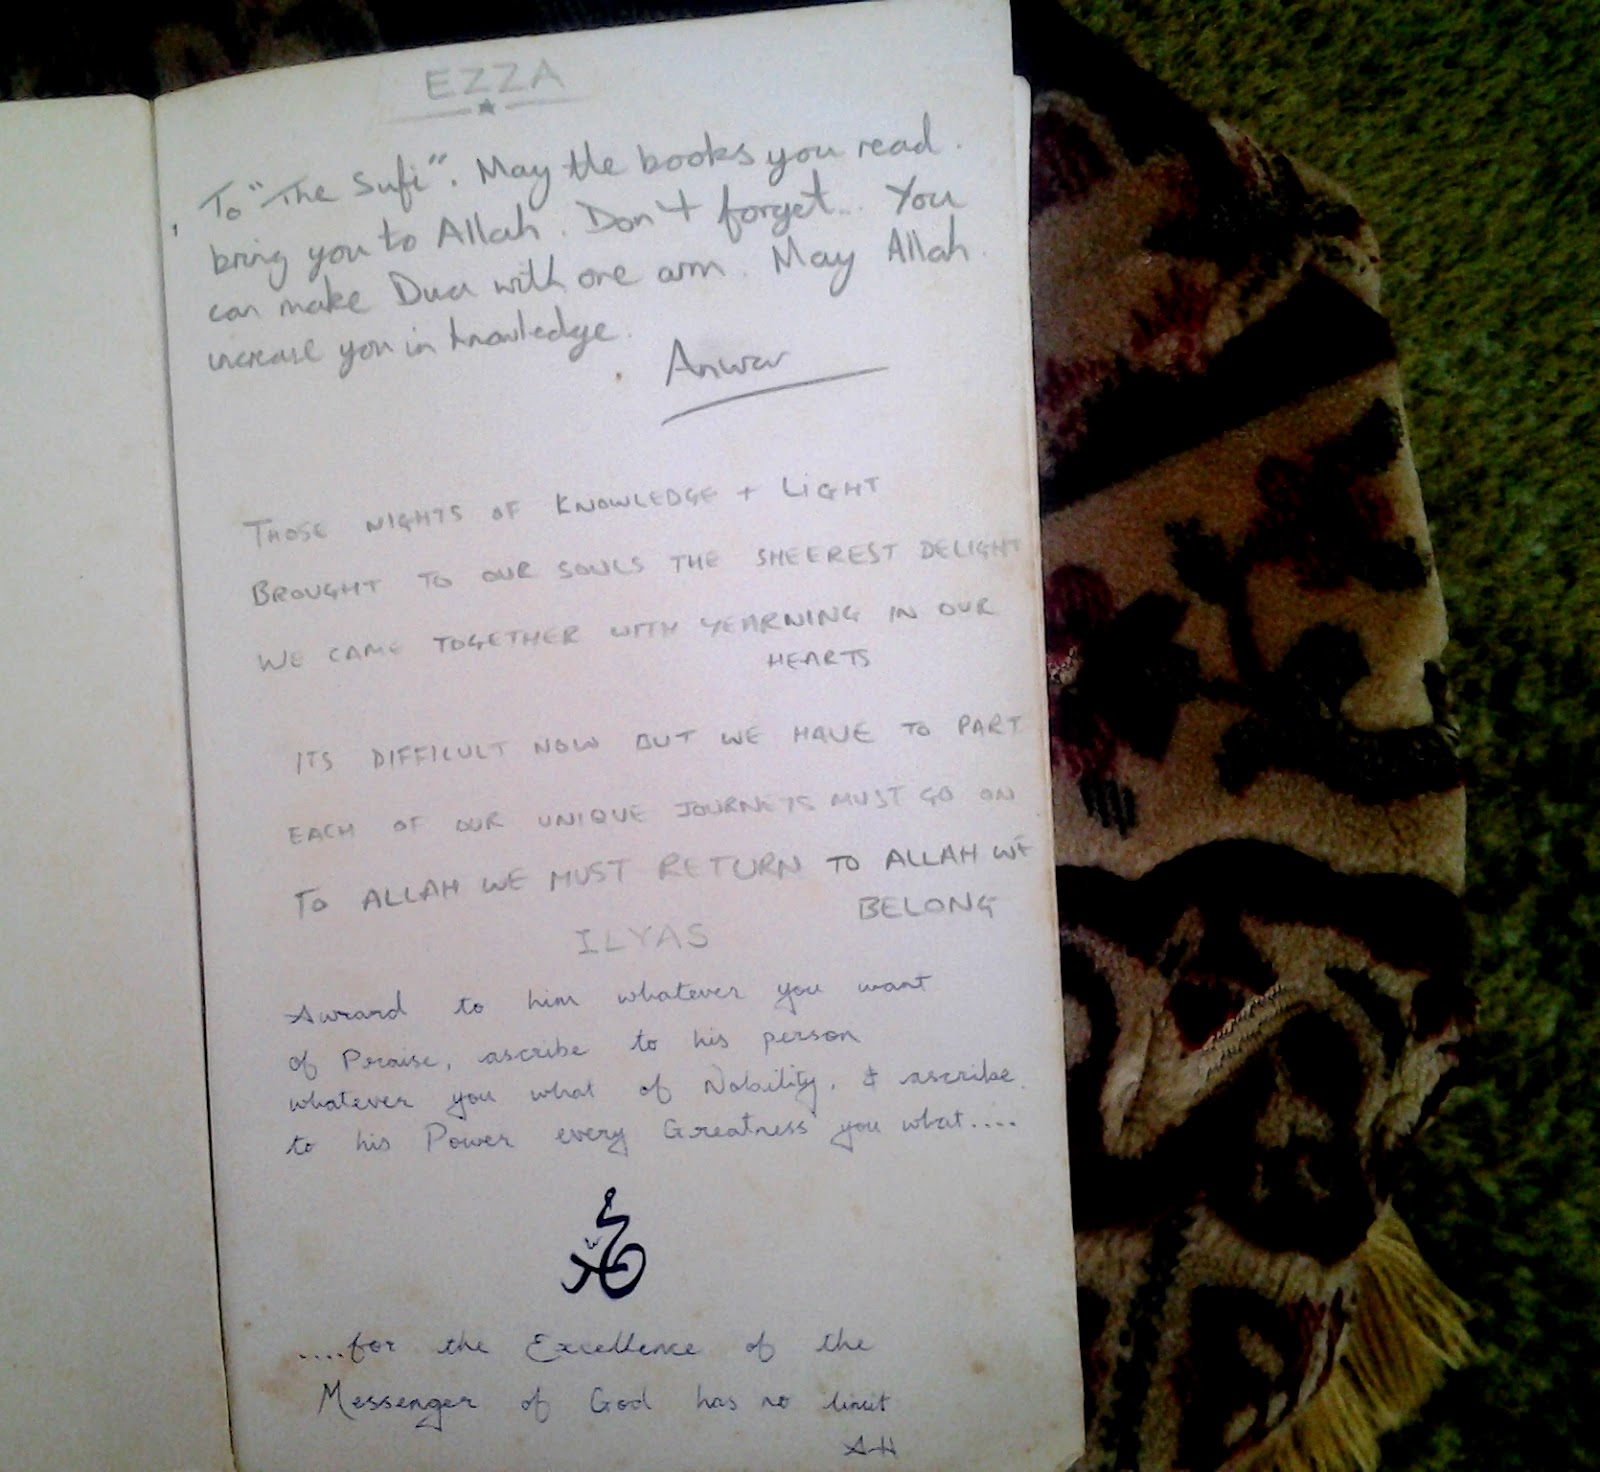 EZZA
To "The Sufi". May the books you read.
bring you to Allah. Don't forget... You
can make Dua with one arm. May Allah.
increase you in knowledge.
Anwar
THOSE NIGHTS OF KNOWLEDGE + LIGHT
BROUGHT TO OUR SOULS THE SHEEREST DELIGHT
WE CAME TOGETHER WITH YEARNING IN OUR
HEARTS
ITS DIFFICULT NOW BUT WE HAVE TO PART
EACH OF OUR UNIQUE JOURNEYS MUST GO ON
TO ALLAH WE MUST RETURN TO ALLAH WE
BELONG
ILYAS
Award to him whatever you want
of Praise, ascribe to his person
whatever you what of Nobility, & ascribe
to his Power every Greatness you what....
....for the Excellence of the
Messenger of God has no limit
AH